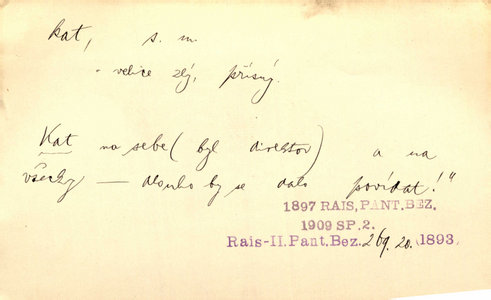 kat, s. m.
- velice zlý, přísný.
Kat na sebe (byl direktor) a na
všecky — dlouho by se dalo povídat!"
1897 RAIS, PANT. BEZ.
1909 SP. 2.
Rais-II. Pant. Bez. 269. 20. 1893.